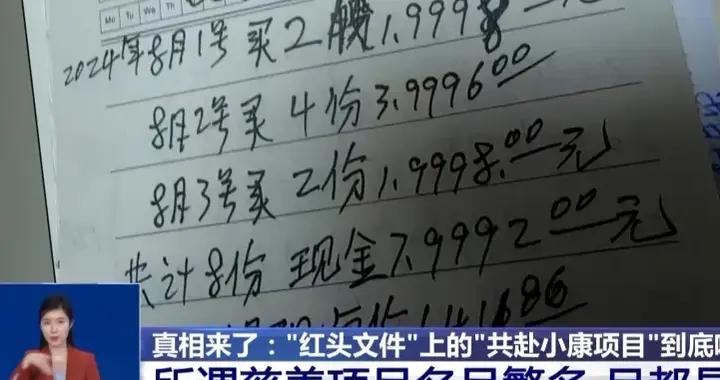 Mo Tu We Th
2024年8月1号买2股1.9998
8月2号买4份3.9996 00
8月3号买2份1.9998.00元
共计8份 现金7.9992 00元
真相来了："红头文件"上的"共赴小康项目"到底
所谓慈善项目名目繁多